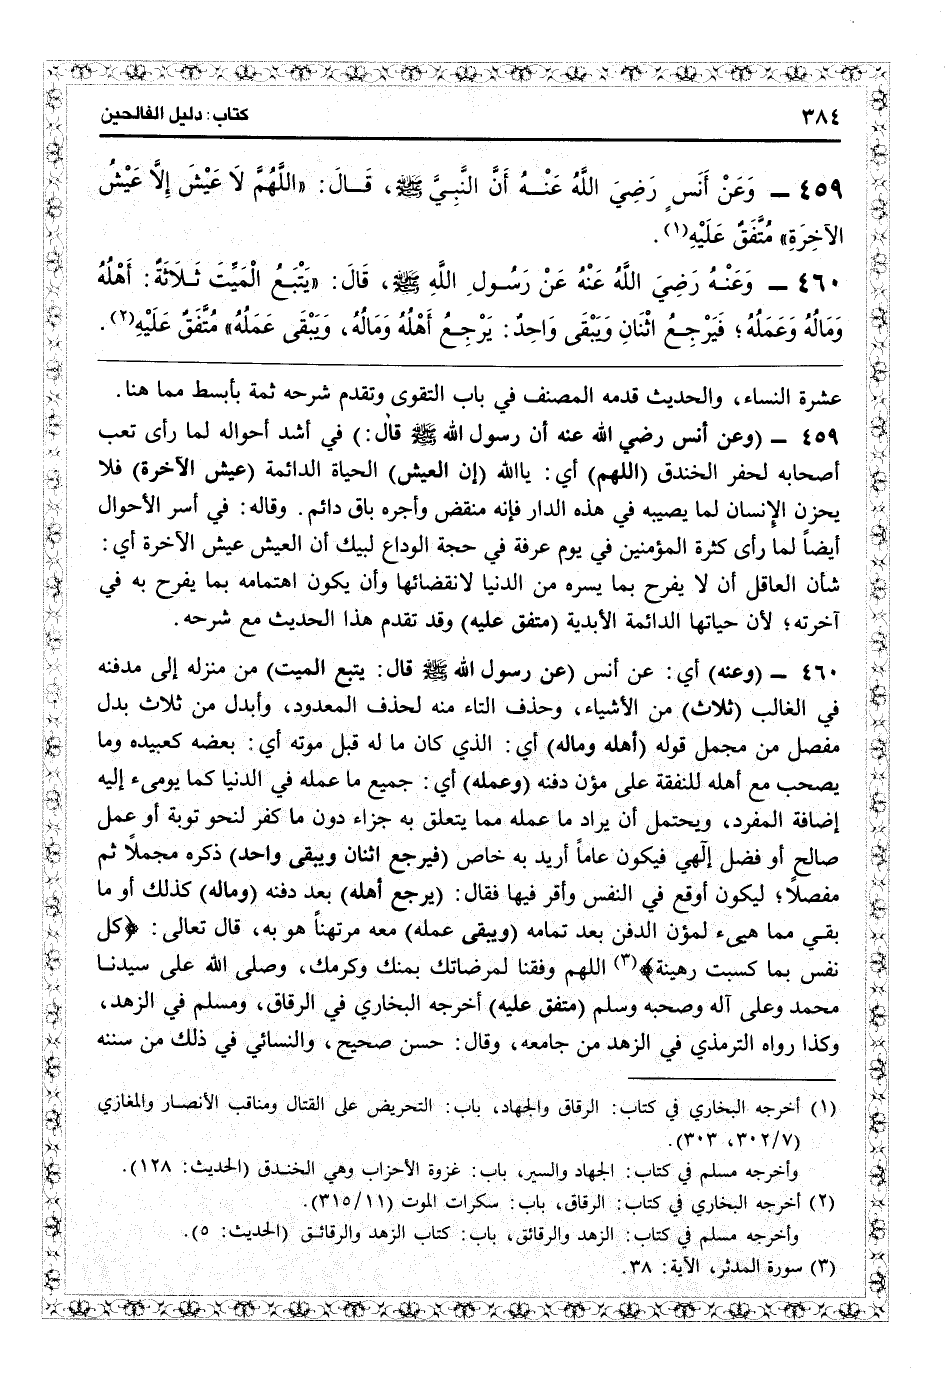 ٣٨٤
كتاب: دليل الفالحين
٤٥٩ ـ وَعَنْ أَنَسٍ رَضِيَ اللَّهُ عَنْـهُ أَنَّ النَّبِيَّ ﷺ، قَـالَ: «اللَّهُمَّ لَا عَيْشَ إِلَّا عَيْشُ
الآخِرَةِ» مُتَّفَقٌ عَلَيْهِ(١).
٤٦٠ ـ وَعَنْـهُ رَضِيَ اللَّهُ عَنْهُ عَنْ رَسُولِ اللَّهِ ﷺ، قَالَ: «يَتْبَعُ الْمَيِّتَ ثَـلَاثَةٌ: أَهْلُهُ
وَمَالُهُ وَعَمَلُهُ؛ فَيَرْجِعُ اثْنَانِ وَيَبْقَى وَاحِدٌ: يَرْجِعُ أَهْلُهُ وَمَالُهُ، وَيَبْقَى عَمَلُهُ» مُتَّفَقٌ عَلَيْهِ(٢).
عشرة النساء، والحديث قدمه المصنف في باب التقوى وتقدم شرحه ثمة بأبسط مما هنا.
٤٥٩ ـ (وعن أنس رضي الله عنه أن رسول الله ﷺ قال:) في أشد أحواله لما رأى تعب
أصحابه لحفر الخندق (اللهم) أي: ياالله (إن العيش) الحياة الدائمة (عيش الآخرة) فلا
يحزن الإنسان لما يصيبه في هذه الدار فإنه منقض وأجره باق دائم. وقاله: في أسر الأحوال
أيضاً لما رأى كثرة المؤمنين في يوم عرفة في حجة الوداع لبيك أن العيش عيش الآخرة أي:
شأن العاقل أن لا يفرح بما يسره من الدنيا لانقضائها وأن يكون اهتمامه بما يفرح به في
آخرته؛ لأن حياتها الدائمة الأبدية (متفق عليه) وقد تقدم هذا الحديث مع شرحه.
٤٦٠ ـ (وعنه) أي: عن أنس (عن رسول الله ﷺ قال: يتبع الميت) من منزله إلى مدفنه
في الغالب (ثلاث) من الأشياء، وحذف التاء منه لحذف المعدود، وأبدل من ثلاث بدل
مفصل من مجمل قوله (أهله وماله) أي: الذي كان ما له قبل موته أي: بعضه كعبيده وما
يصحب مع أهله للنفقة على مؤن دفنه (وعمله) أي: جميع ما عمله في الدنيا كما يومىء إليه
إضافة المفرد، ويحتمل أن يراد ما عمله مما يتعلق به جزاء دون ما كفر لنحو توبة أو عمل
صالح أو فضل إلٓهي فيكون عاماً أريد به خاص (فيرجع اثنان ويبقى واحد) ذكره مجملاً ثم
مفصلاً؛ ليكون أوقع في النفس وأقر فيها فقال: (يرجع أهله) بعد دفنه (وماله) كذلك أو ما
بقي مما هيىء لمؤن الدفن بعد تمامه (ويبقى عمله) معه مرتهناً هو به، قال تعالى: ﴿كل
نفس بما كسبت رهينة﴾(٣) اللهم وفقنا لمرضاتك بمنك وكرمك، وصلى الله على سيدنا
محمد وعلى آله وصحبه وسلم (متفق عليه) أخرجه البخاري في الرقاق، ومسلم في الزهد،
وكذا رواه الترمذي في الزهد من جامعه، وقال: حسن صحيح، والنسائي في ذلك من سننه
(١) أخرجه البخاري في كتاب: الرقاق والجهاد، باب: التحريض على القتال ومناقب الأنصار والمغازي
(٣٠٢/٧، ٣٠٣).
وأخرجه مسلم في كتاب: الجهاد والسير، باب: غزوة الأحزاب وهي الخندق (الحديث: ١٢٨).
(٢) أخرجه البخاري في كتاب: الرقاق، باب: سكرات الموت (٣١٥/١١).
وأخرجه مسلم في كتاب: الزهد والرقائق، باب: كتاب الزهد والرقائق (الحديث: ٥).
(٣) سورة المدثر، الآية: ٣٨.